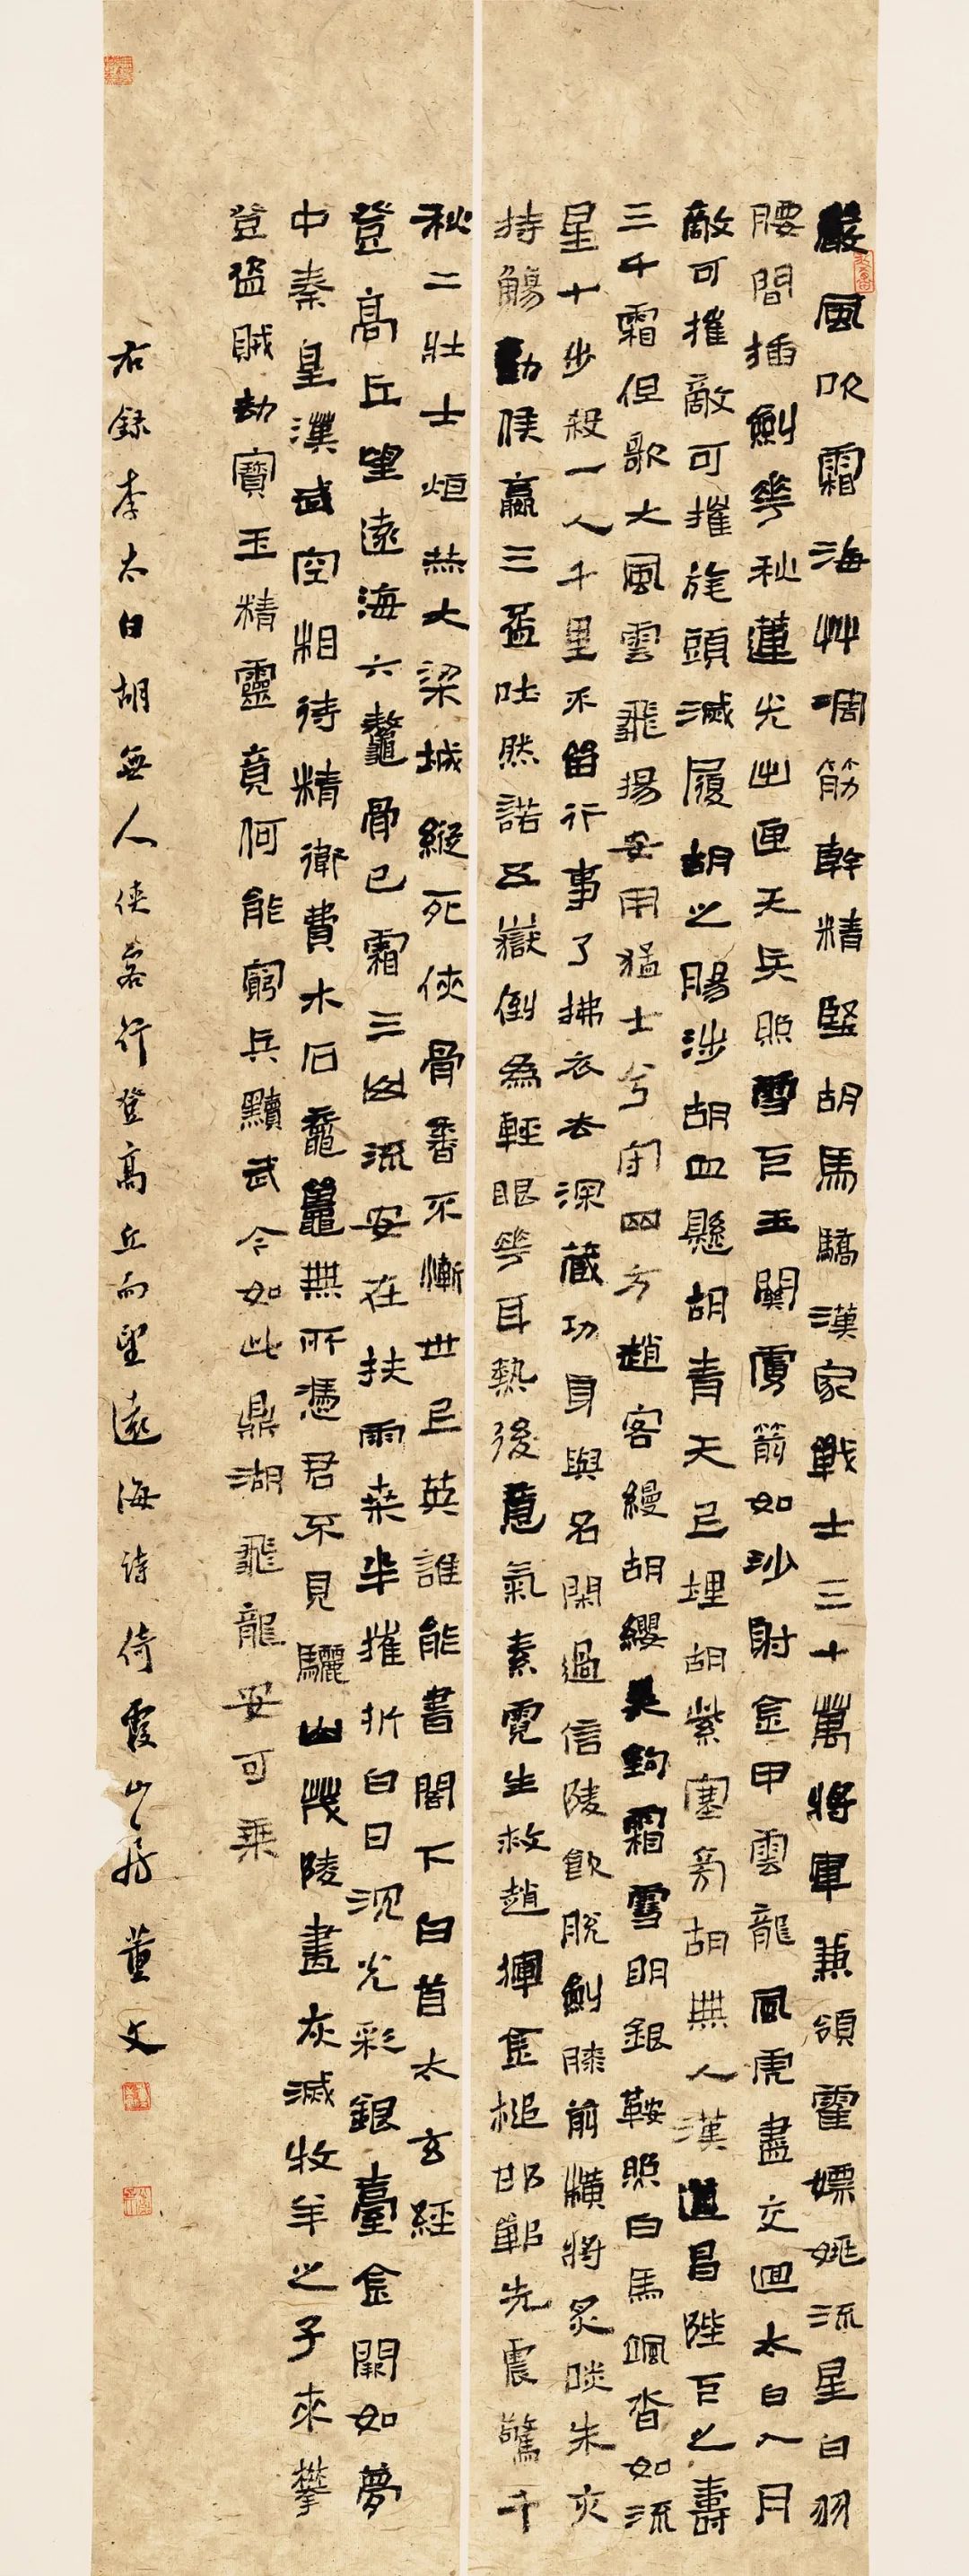 嚴風吹霜海艸凋筋幹精堅胡馬驕漢家戰士三十萬將軍兼領霍嫖姚流星白羽
腰間插劍花秋蓮光出匣天兵照雪下玉關虜箭如沙射金甲雲龍風虎盡交迴太白入月
敵可摧敵可摧旄頭滅履胡之腸涉胡血懸胡青天上埋胡紫塞旁胡無人漢道昌陛下之壽
三千霜但歌大風雲飛揚安用猛士兮守四方趙客縵胡纓吳鉤霜雪明銀鞍照白馬颯沓如流
星十步殺一人千里不留行事了拂衣去深藏功身與名閑過信陵飲脫劍膝前橫將炙啖朱亥
持觴勸侯嬴三盃吐然諾五嶽倒為輕眼花耳熱後意氣素霓生救趙揮金槌邯鄲先震驚千
秋二壯士烜赫大梁城縱死俠骨香不慚世上英誰能書閣下白首太玄經
登高丘望遠海六鰲骨已霜三山流安在扶桑半摧折白日沉光彩銀臺金闕如夢
中秦皇漢武空相待精衛費木石黿鼉無所憑君不見驪山茂陵盡灰滅牧羊之子來攀
登盜賊劫寶玉精靈竟何能窮兵黷武今如此鼎湖飛龍安可乘
右錄李太白胡無人俠客行登高丘而望遠海詩倚霞山房董文